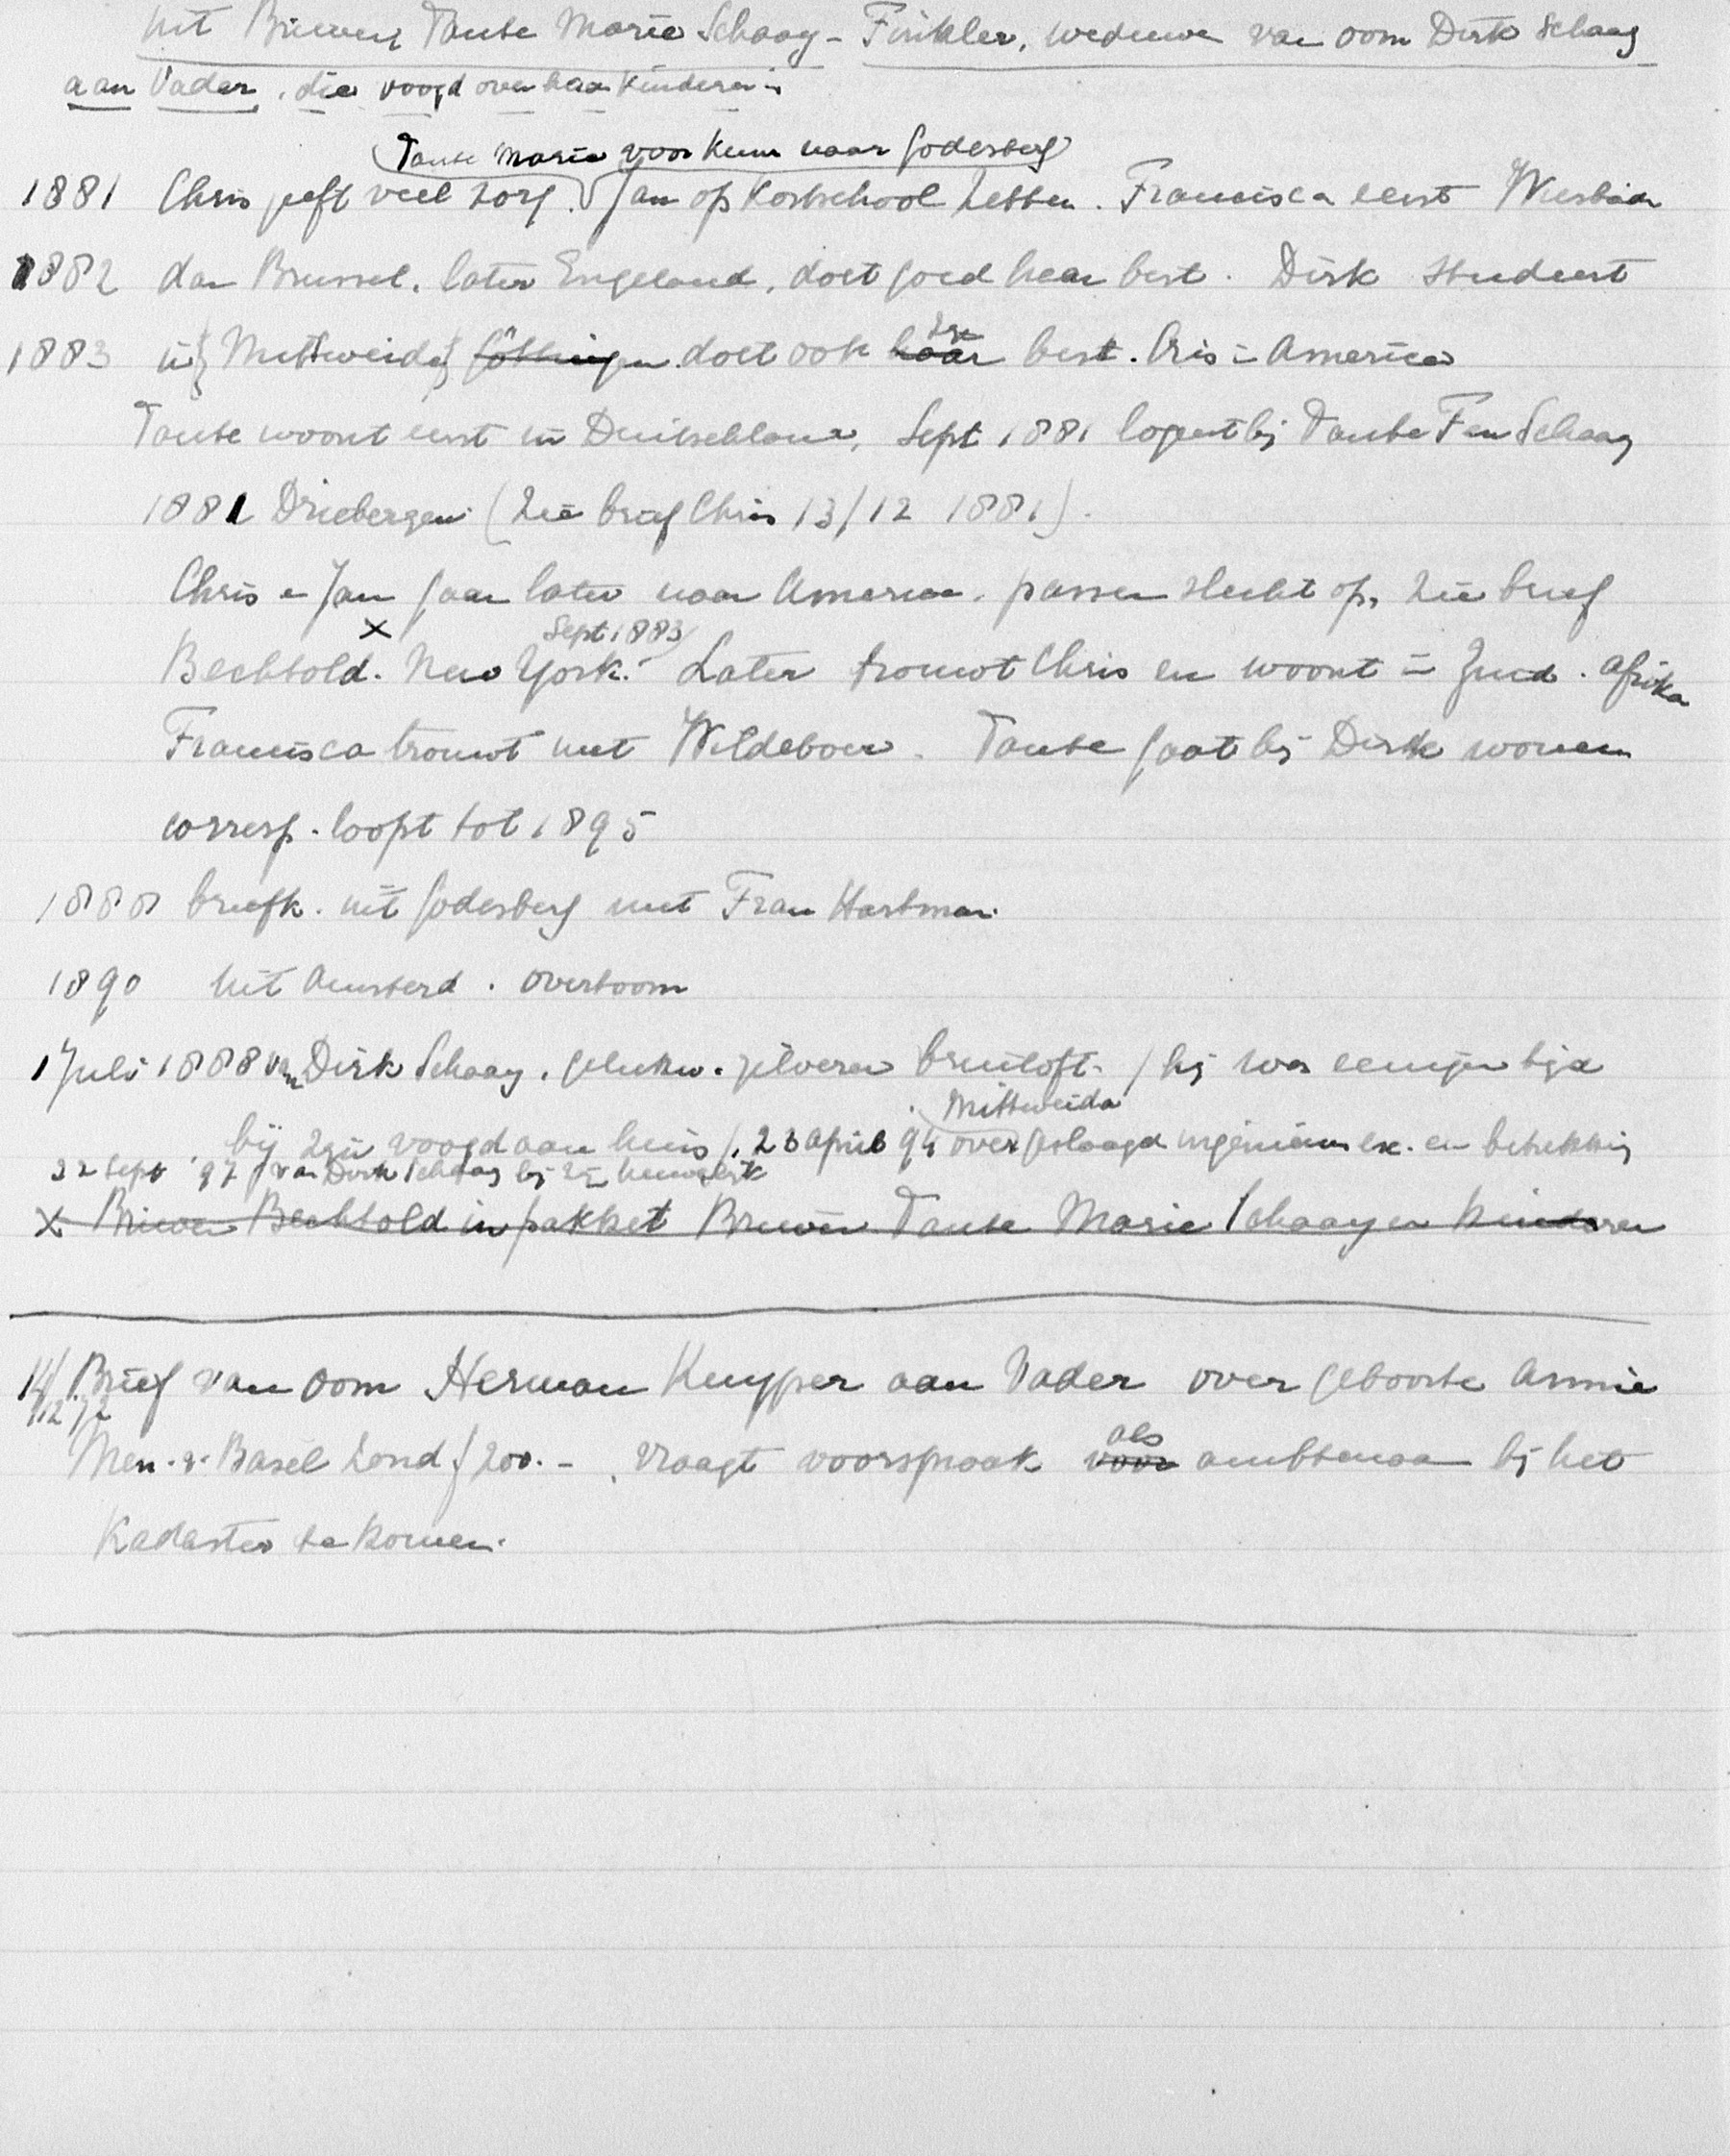 Uit Brieven Tante Marie Schaay - Finkler, weduwe van oom Dirk Schaay
aan Vader, die voogd over haar kinderen is
(Tante Marie voor kuur naar Godesberg)
1881 Chris geeft veel zorg. Jan op kostschool Zetten. Francisca eerst Wiesbaden
1882 dan Brussel, later Engeland, doet goed haar best. Dirk studeert
1883 in Mittweida Göttingen doet ook haar zijn best. Cris in America
Tante woont eerst in Duitschland, Sept 1881 logeert bij Tante F en Schaay
1881 Driebergen (Zie brief Chris 13/12 1881).
Chris en Jan gaan later naar America, passen slecht op, zie brief
x Sept 1883)
Bechtold. New York. Later trouwt Chris en woont in Zuid. Afrika
Francisca trouwt met Wildeboer. Tante gaat bij Dirk wonen
corresp. loopt tot 1895
1888 briefk. uit Godesberg met Frau Hartman.
1890 uit Amsterd. Overtoom
1 Juli 1888 van Dirk Schaay. gelukw. zilveren bruiloft. / hij was eenigen tijd
Mittweida
bij zijn voogd aan huis /. 23 april 94 over geslaagd ingenieurs ex. en betrekking
22 Sept '97 van Dirk Schaay bij zijn huwelijk
x Brieven Bechtold in pakket Brieven Tante Marie Schaay en kinderen
14/12 72 Brief van oom Herman Kuyper aan Vader over geboorte Annie
als
Men. v. Basel zond f 200.-, vraagt voorspraak voor ambtenaar bij het
Kadaster te komen.